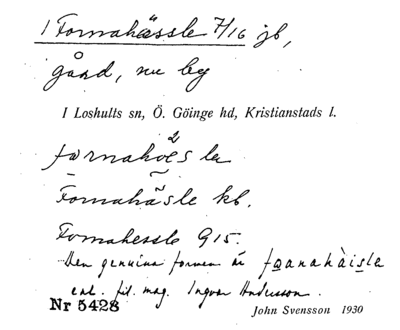 1 Fornahässle 7/16 jb,
gård, nu by
I Loshults sn, Ö. Göinge hd, Kristianstads l.
Fornahäsle kb.
Fornahessle G15.
Den genuina formen är
enl. fil. mag. Ingvar Andersson.
Nr 5428
John Svensson 1930